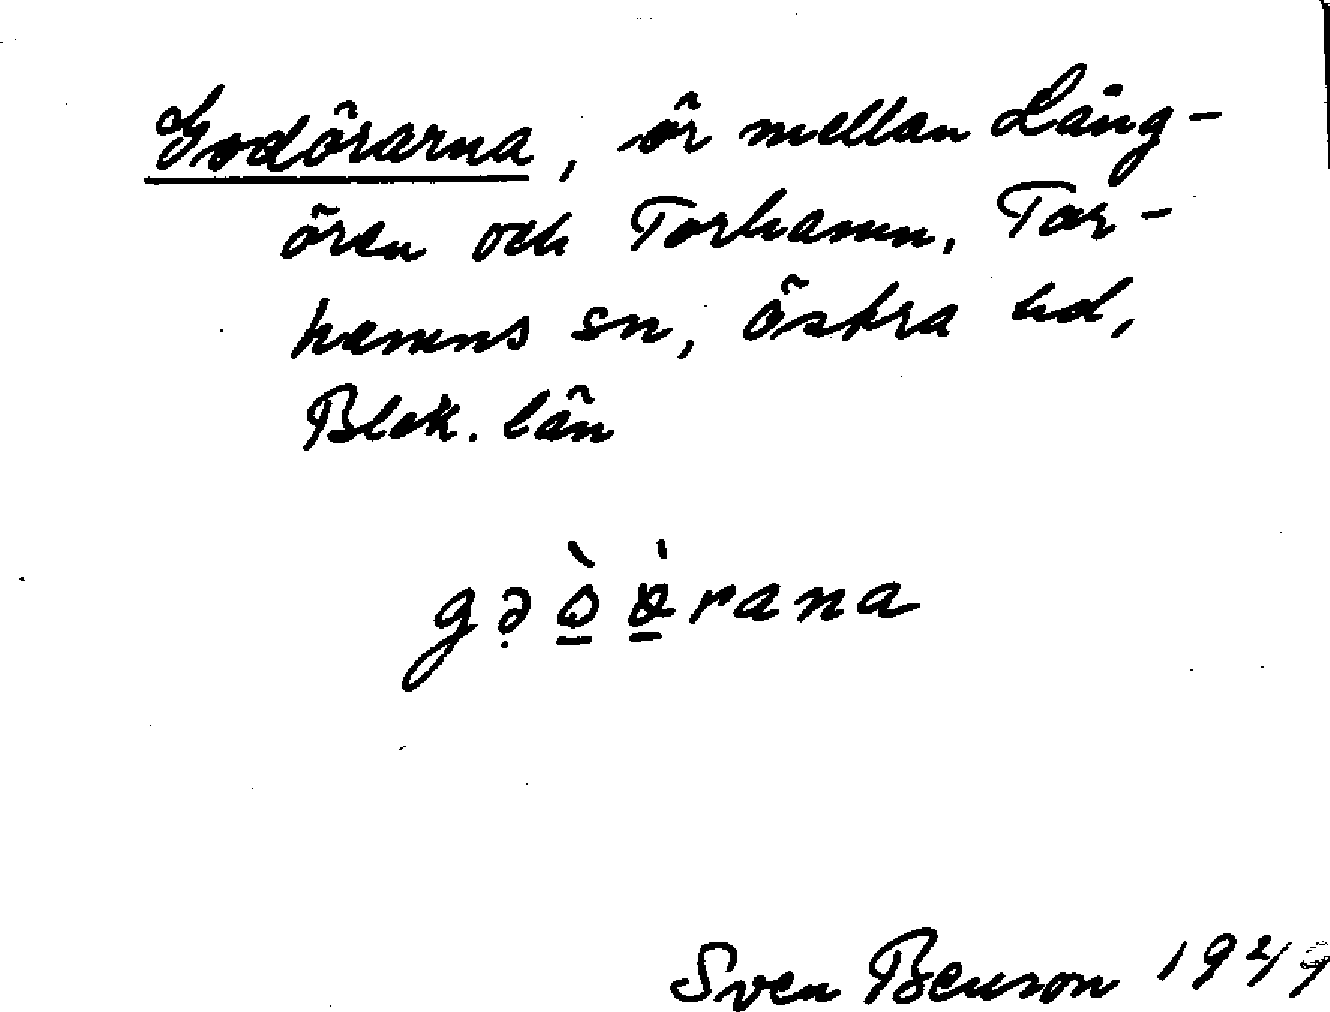 Godörarna, ör mellan Lång-
ören och Torhamn, Tor-
hamns sn, Östra hd,
Blek. län
gə̣ò̱ö̱̀rana
Sven Benson 1949